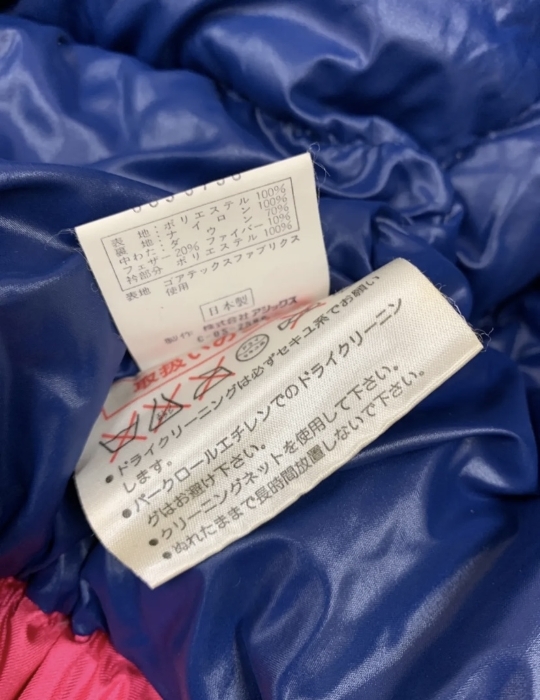 表 地：ポリエステル 100%
裏 地：ナ イ ロ ン 100%
中わた：ダ ウ ン 70%
フェザー 20% ファイバー 10%
衿部分 ポリエステル 100%
表地 ゴアテックスファブリクス
使用
日本製
製作 株式会社アリックス
取扱い
●ドライクリーニングは必ずセキユ系でお願い
します。
●パークロールエチレンでのドライクリーニン
グはお避け下さい。
●クリーニングネットを使用して下さい。
●ぬれたままで長時間放置しないで下さい。